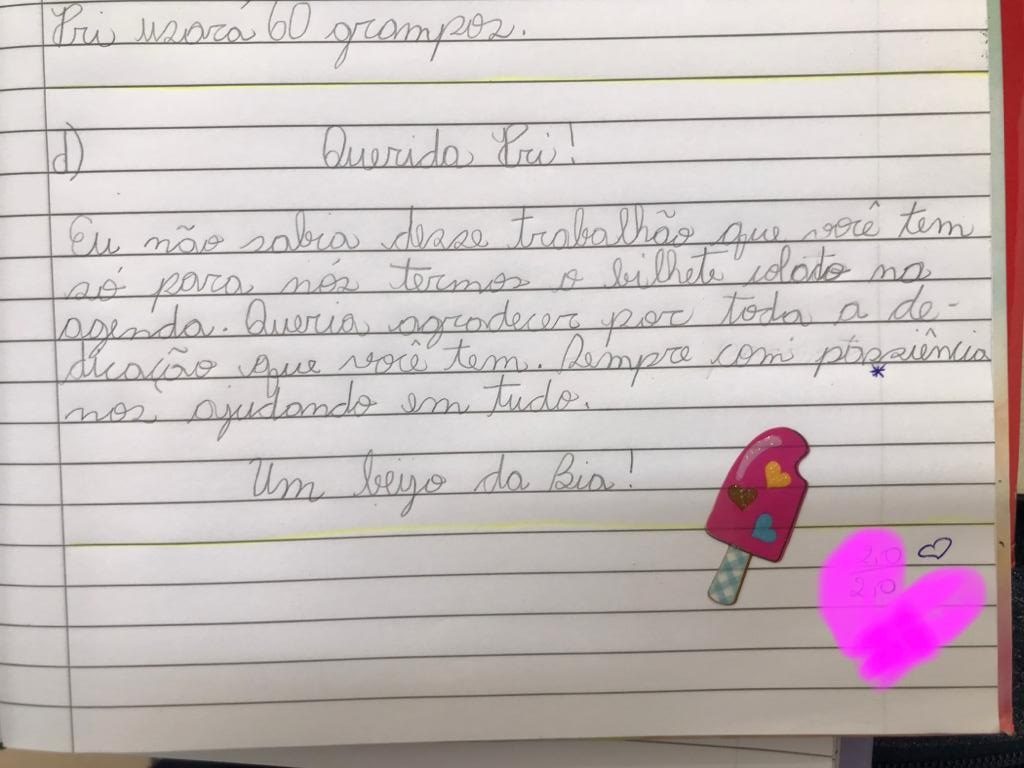 Pri usará 60 grampos.
d) Querida Pri!
Eu não sabia desse trabalhão que você tem
só para nós termos o bilhete colado na
agenda. Queria agradecer por toda a de-
dicação que você tem. Sempre com
nos ajudando em tudo.
Um beijo da Bia!
2,0
2,0